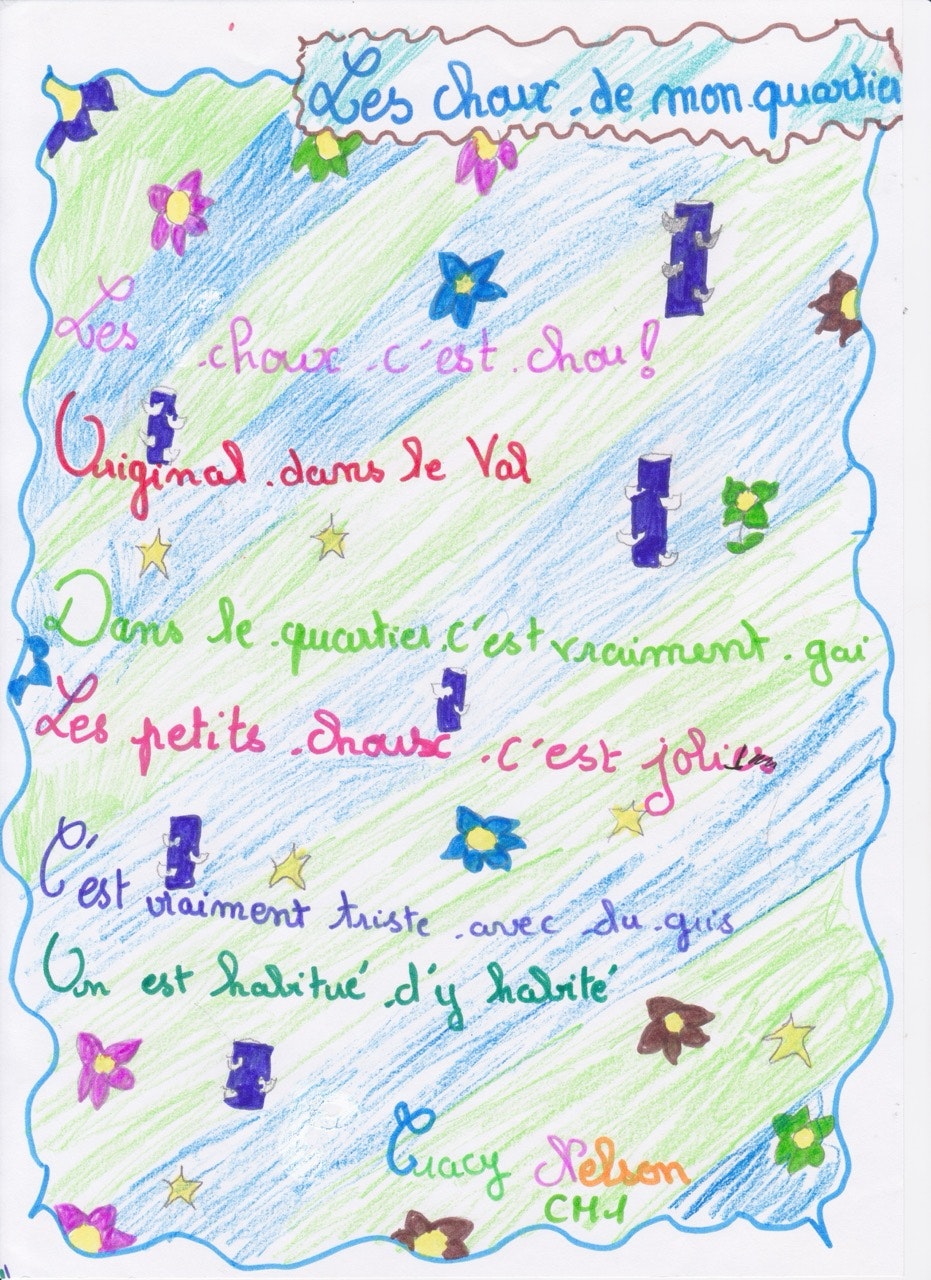 Les choux de mon quartier
Les choux c'est chou!
Original dans le Val
Dans le quartier c'est vraiment gai
Les petits choux c'est jolie
C'est vraiment triste avec du gris
On est habitué d'y habité
Tracy Nelson
CM1